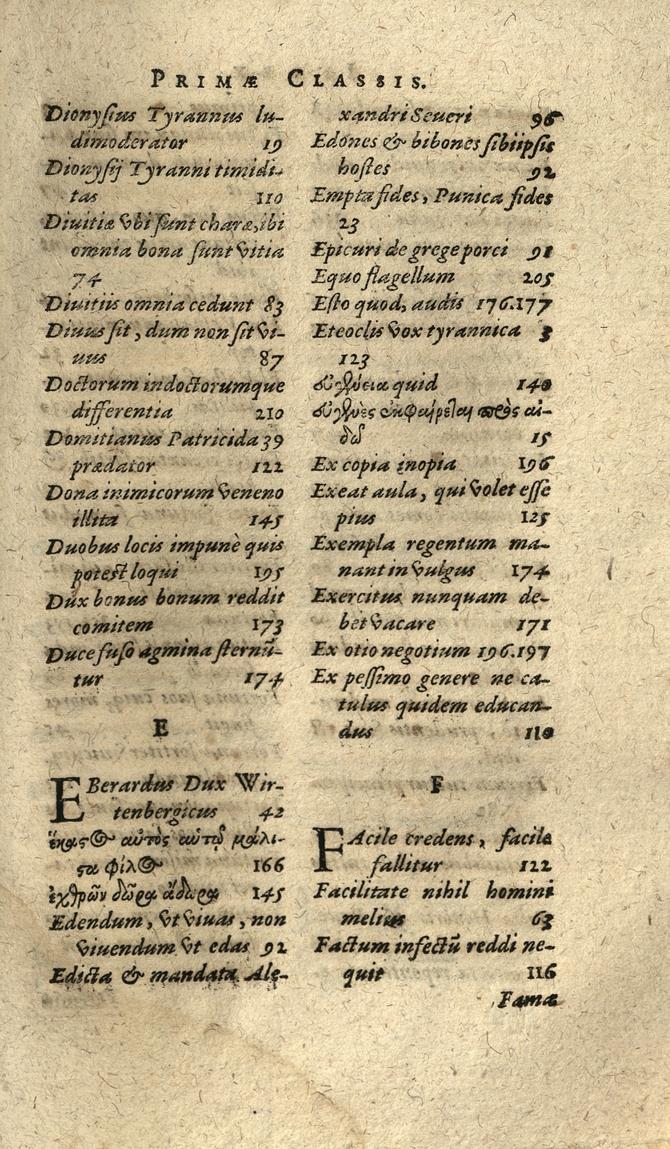 PRIMÆ CLASSIS.
Dionysius Tyrannus lu-
dimoderator 19
Dionysij Tyranni timidi-
tas 110
Diuitiæ vbi sunt charæ, ibi
omnia bona sunt vitia
74
Diuitiis omnia cedunt 83
Diuus sit, dum non sit vi-
uus 87
Doctorum indoctorumque
differentia 210
Domitianus Patricida 39
prædator 122
Dona inimicorum veneno
illita 145
Duobus locis impunè quis
potest loqui 195
Dux bonus bonum reddit
comitem 173
Duce fuso agmina sternũ-
tur 174
E
EBerardus Dux Wir-
tenbergicus 42
ἕκαςος αὐτὸς αὑτῷ μάλι-
ςα φίλος 166
ἐχθρῶν δῶρα ἄδωρα 145
Edendum, vt viuas, non
viuendum vt edas 92
Edicta & mandata Ale-
xandri Seueri 96
Edones & bibones sibiipsis
hostes 92
Empta fides, Punica fides
23
Epicuri de grege porci 91
Equo flagellum 205
Esto quod, audis 176.177
Eteoclis vox tyrannica 3
123
εὐγένεια quid 140
πρὸς αἰ-
δῶ 15
Ex copia inopia 196
Exeat aula, qui volet esse
pius 125
Exempla regentum ma-
nant in vulgus 174
Exercitus nunquam de-
bet vacare 171
Ex otio negotium 196.197
Ex pessimo genere ne ca-
tulus quidem educan-
dus 110
F
FAcile credens, facile
fallitur 122
Facilitate nihil homini
melius 63
Factum infectũ reddi ne-
quit 116
Famæ